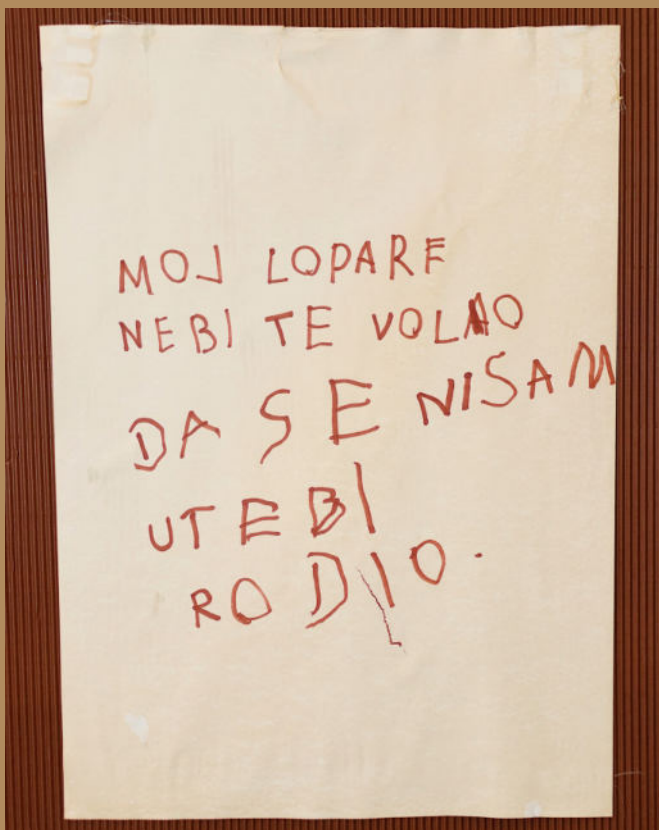 MOJ LOPARE
NEBI TE VOLAO
DA SE NISAM
UTEBI
RODIO.